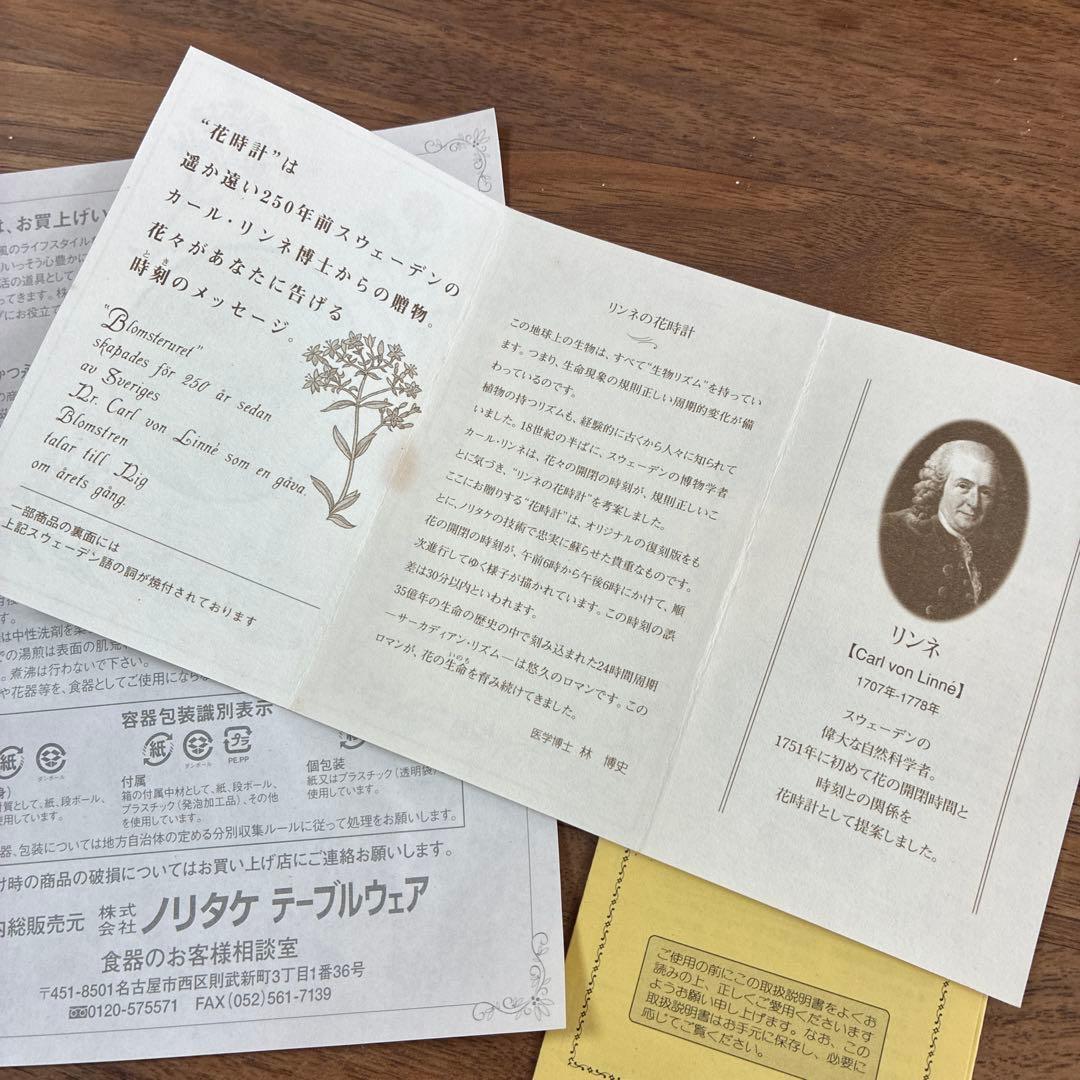 “花時計”は
遥か遠い250年前スウェーデンの
カール・リンネ博士からの贈物。
花々があなたに告げる
時刻のメッセージ。
とき
“Blomsteruret”
skapades för 250 år sedan
av Sveriges
Dr. Carl von Linné som en gåva.
Blomstren
talar till Dig
om årets gång.
一部商品の裏面には
上記スウェーデン語の詞が焼付されております
リンネの花時計
この地球上の生物は、すべて“生物リズム”を持ってい
ます。つまり、生命現象の規則正しい周期的変化が備
わっているのです。
植物の持つリズムも、経験的に古くから人々に知られて
いました。18世紀の半ばに、スウェーデンの博物学者
カール・リンネは、花々の開閉の時刻が、規則正しいこ
とに気づき、“リンネの花時計”を考案しました。
ここにお贈りする“花時計”は、オリジナルの復刻版をも
とに、ノリタケの技術で忠実に蘇らせた貴重なものです。
花の開閉の時刻が、午前6時から午後6時にかけて、順
次進行してゆく様子が描かれています。この時刻の誤
差は30分以内といわれます。
35億年の生命の歴史の中で刻み込まれた24時間周期
―サーカディアン・リズム―は悠久のロマンです。この
ロマンが、花の生命を育み続けてきました。
いのち
医学博士 林 博史
リンネ
【Carl von Linné】
1707年-1778年
スウェーデンの
偉大な自然科学者。
1751年に初めて花の開閉時間と
時刻との関係を
花時計として提案しました。
は、お買上げい
風のライフスタイル
いっそう心豊かに
活の道具として
ってきます。株
ずにお役立て
す。
は中性洗剤を
での湯煎は表面の肌荒
。煮沸は行わないで下さい。
や花器等を、食器としてご使用にな
容器包装識別表示
紙
ダンボール
紙
ダンボール
プラ
PE.PP
紙
身)
付属
個包装
材質として、紙、段ボール、
使用しています。
箱の付属中材として、紙、段ボール、
プラスチック（発泡加工品）、その他
を使用しています。
紙又はプラスチック（透明袋）
使用しています。
器、包装については地方自治体の定める分別収集ルールに従って処理をお願いします。
け時の商品の破損についてはお買い上げ店にご連絡お願いします。
内総販売元 株式会社 ノリタケ テーブルウェア
食器のお客様相談室
〒451-8501名古屋市西区則武新町3丁目1番36号
0120-575571 FAX(052)561-7139
ご使用の前にこの取扱説明書をよくお
読みの上、正しくご愛用くださいます
ようお願い申し上げます。なお、この
取扱説明書はお手元に保存し、必要に
応じてご覧ください。